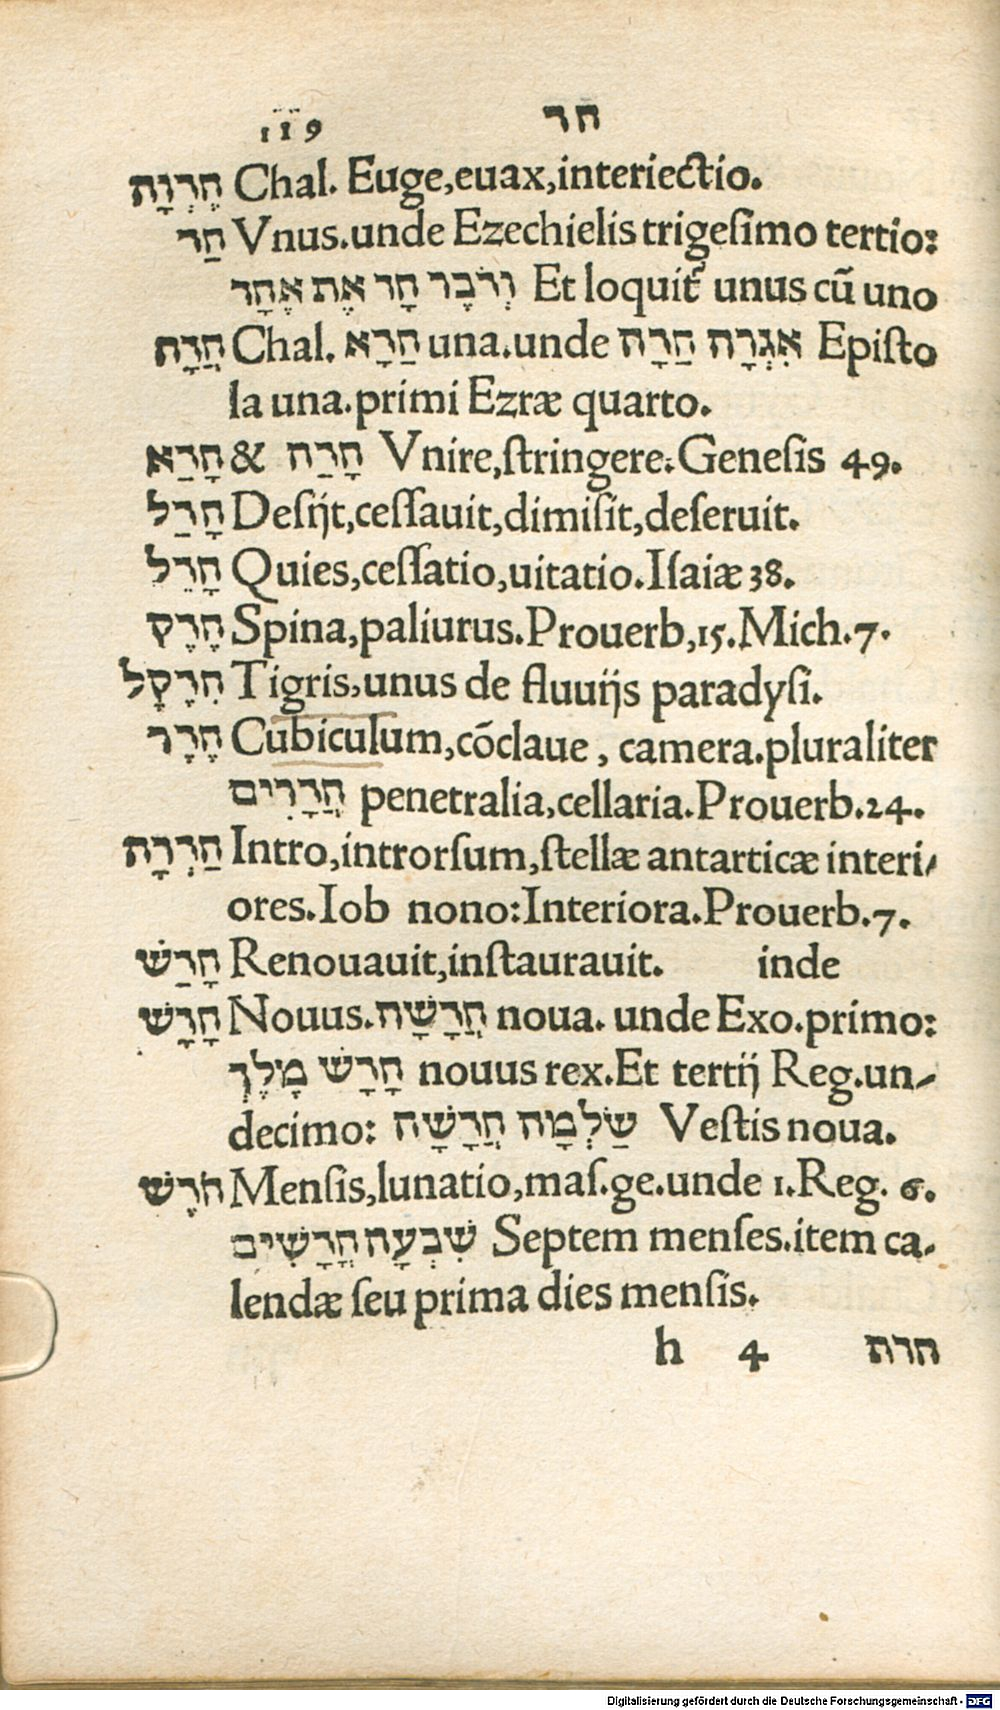 119 חד
חֶדְוָה Chal. Euge,euax,interiectio.
חַד Vnus.unde Ezechielis trigeſimo tertio:
וְדִבֶּר חָד אֶת אֶחָד Et loquit᷑ unus cū uno
חֲדָה Chal. חַדָא una.unde אִגְּרָה חַדָה Epiſto
la una.primi Ezræ quarto.
חָדַא & חָדַה Vnire,ſtringere.Geneſis 49.
חָדַל Deſijt,ceſſauit,dimiſit,deſeruit.
חָדֵל Quies,ceſſatio,uitatio.Iſaiæ 38.
חֶדֶק Spina,paliurus.Prouerb,15.Mich.7.
חִדֶקֶל Tigris,unus de fluuijs paradyſi.
חֶדֶר Cubiculum,cōclaue, camera.pluraliter
חֲדָרִים penetralia,cellaria.Prouerb.24.
חַדְרָה Intro,introrſum,ſtellæ antarticæ interi/
ores.Iob nono:Interiora.Prouerb.7.
חָדַשׁ Renouauit,inſtaurauit. inde
חָדָשׁ Nouus.חֲדָשָׁה noua. unde Exo.primo:
חָדָשׁ מֶלֶךְ nouus rex.Et tertij Reg.un/
decimo: שַׂלְמָה חֲדָשָׁה Veſtis noua.
חֹדֶשׁ Menſis,lunatio,maſ.ge.unde 1.Reg. 6.
שִׁבְעָה חֳדָשִׁים Septem menſes.item ca/
lendæ ſeu prima dies menſis.
h 4 חדת
Digitalisierung gefördert durch die Deutsche Forschungsgemeinschaft - DFG